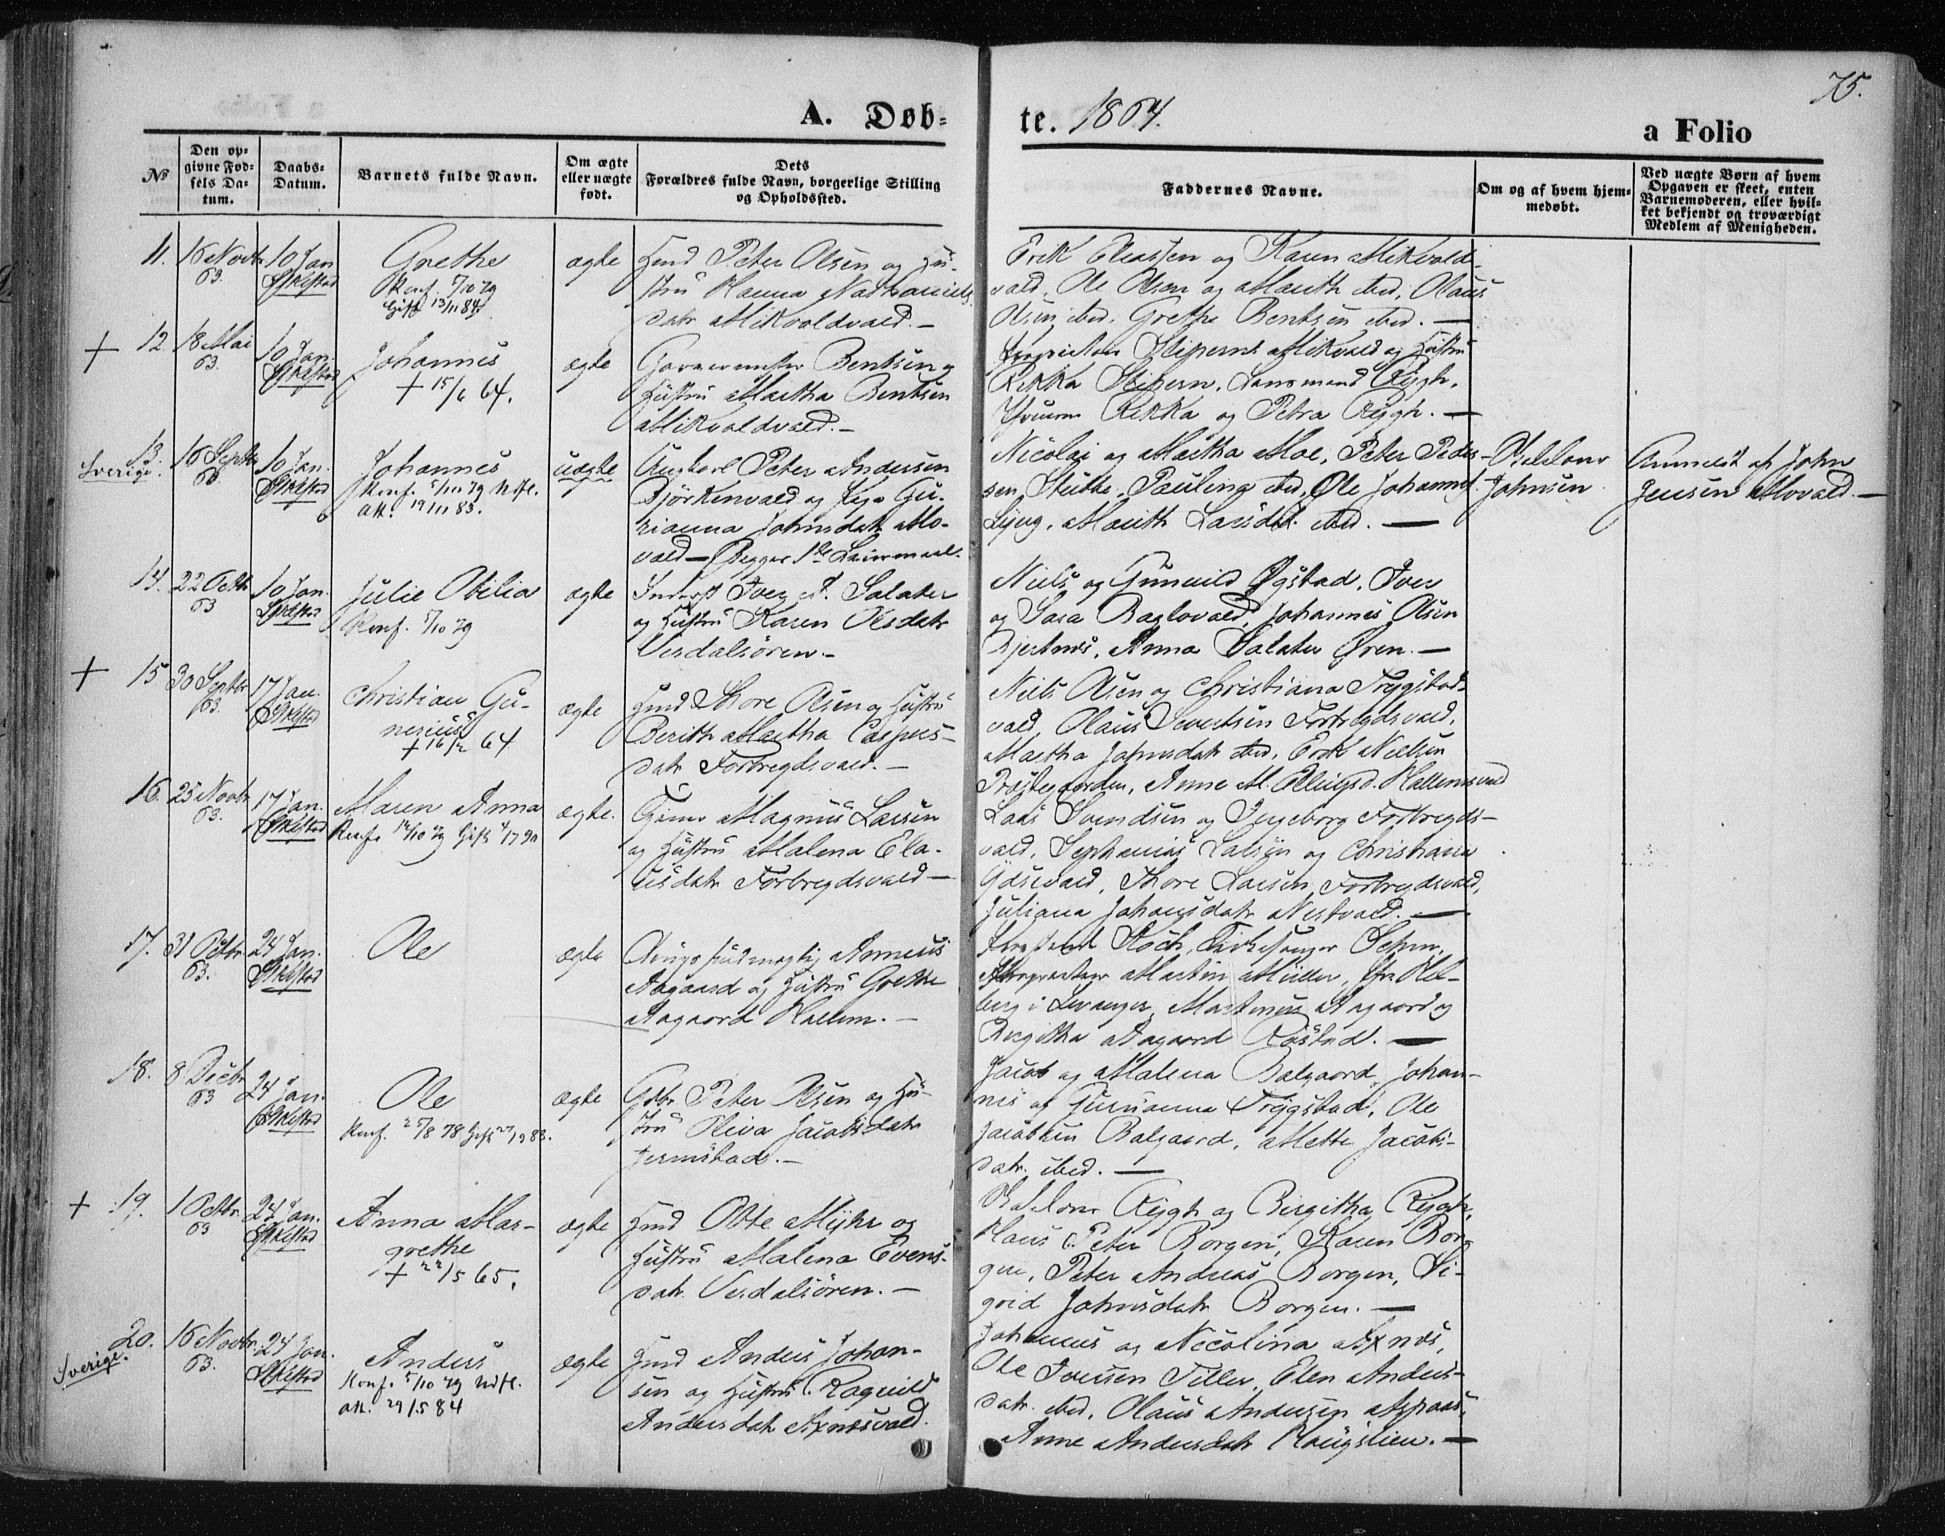 75.
A. Døb-
te. 1864.
a Folio
No
Den op-
givne Fød-
sels Da-
tum.
Daabs-
Datum.
Barnets fulde Navn.
Om ægte
eller uægte
født.
Dets
Forældres fulde Navn, borgerlige Stilling
og Opholdssted.
Faddernes Navne.
Om og af hvem hjem-
medøbt.
Ved uægte Børn af hvem
Opgaven er skeet, enten
Barnemoderen, eller hvil-
ket bekjendt og troværdigt
Medlem af Menigheden.
11.
16 Novbr
63.
10 Jan
Grethe
Konf. 5/10 79
Gift 13/11 84.
ægte
Hmd Peter Olsen og Hu-
stru Hanna Nathaniels
datr Mikvoldvald. —
Erik Eliassen og Karen Mikvold-
vald, Ole Olsen og Marith ibd, Olaus
Olsen, ibd. Grethe Bentsen ibd. —
+ 12
18 Mai
63.
10 Jan.
Johannes
+ 15/6 64.
ægte
Garvermester Bentsen og
Hustru Martha Bentsen
Mikvoldvald. —
Proprietær og Hustru
Rikka Lensmand Rygh,
Rikka og Petra Rygh. —
13.
Sverige.
16 Septbr
10 Jan.
Johannes
Konf. 5/10 79 Udfl.
att. 19/11 83.
uægte
Ungkarl Peter Andersen
Björkenvald og Pige Gu-
rianna Johnsdatr Mo-
vald — Begges 1ste Leiermaal.
Nicolai og Martha Moe, Peter Peder-
sen Pauline ibd, Ole Johannes
Marith Larsdtr. ibd. —
Johnsen
Anmeldt af John
Jensen Movald. —
14.
22 Octbr
63
10 Jan.
Julie Otilia
Konf. 5/10 79
ægte
Inderst Iver Salater
og Hustru Karen Olsdatr
Verdalsören. —
Niels og Gunvild Øgstad, Iver
og Sara Baglovald, Johannes Olsen
Anna Salater Øren. —
+ 15
30 Septbr
63.
17 Jan.
Christian Gu-
nerius
+ 16/2 64
ægte
Hmd Thore Olsen og Hustru
Berith Martha Caspers-
datr Forbregdsvald. —
Niels Olsen og Christiana Trygstad-
vald, Olaus Severtsen Forbregdsvald,
Martha Johnsdatr ibd, Erik Nielsen
Præstegaarden, Anne M. Ellingsd. Hallemsvald
16.
25 Novbr
63.
17 Jan.
Maren Anna
Konf. 12/10 79 Gift 4/7 90
ægte.
Magnus Larsen
og Hustru Malena Ela-
iasdatr Forbregdsvald —
Lars Svendsen og Ingeborg Forbregds-
vald, Sephanias Larsen og Christiana
Ydsevald, Thore Larsen Forbregdsvald,
Juliana Johansdatr Nestvald. —
17.
31 Octbr
63.
24 Jan.
Ole
ægte
Anneus
Aagaard og Hustru Grethe
Aagaard Hallem. —
Koch, Kirkesanger
Martin Müller,
i Levanger, Martinus Aagaard og
Birgitha Aagaard Røstad. —
18.
8 Decbr
63
24 Jan.
Ole
Konf. 25/8 78 Gift 27/9 88.
ægte
Gdbr. Peter Olsen og Hu-
stru Oliva Jacobsdatr
Jermstad. —
Jacob og Malena Balgaard, Johan-
nes og Gurianna Trygstad, Ole
Jacobsen Balgaard, Mette Jacobs-
datr. ibd. —
+ 19.
1 Octbr.
63
24 Jan.
Anna Mar-
grethe
+ 22/5 65.
ægte
Hmd Obte Myhr og
Hustru Malena Evens-
datr. Verdalsören. —
Rygh og Birgitha Rygh,
Peter Borgen, Karen Bor-
gen, Peter Andreas Borgen, Si-
grid Johnsdatr Borgen. —
20.
Sverige.
16 Novbr.
63.
24 Jan.
Anders
Konf. 5/10 79 Udfl.
att. 29/5 84
ægte
Hmd Anders Johan-
sen og Hustru Ragnild
Andersdatr Axnesvald.
Johannes og Nicolina Axnes,
Ole Iversen Tiller, Elen Anders-
datr. ibd, Olaus Andersen Aspaas,
Anne Andersdatr Haugslien. —